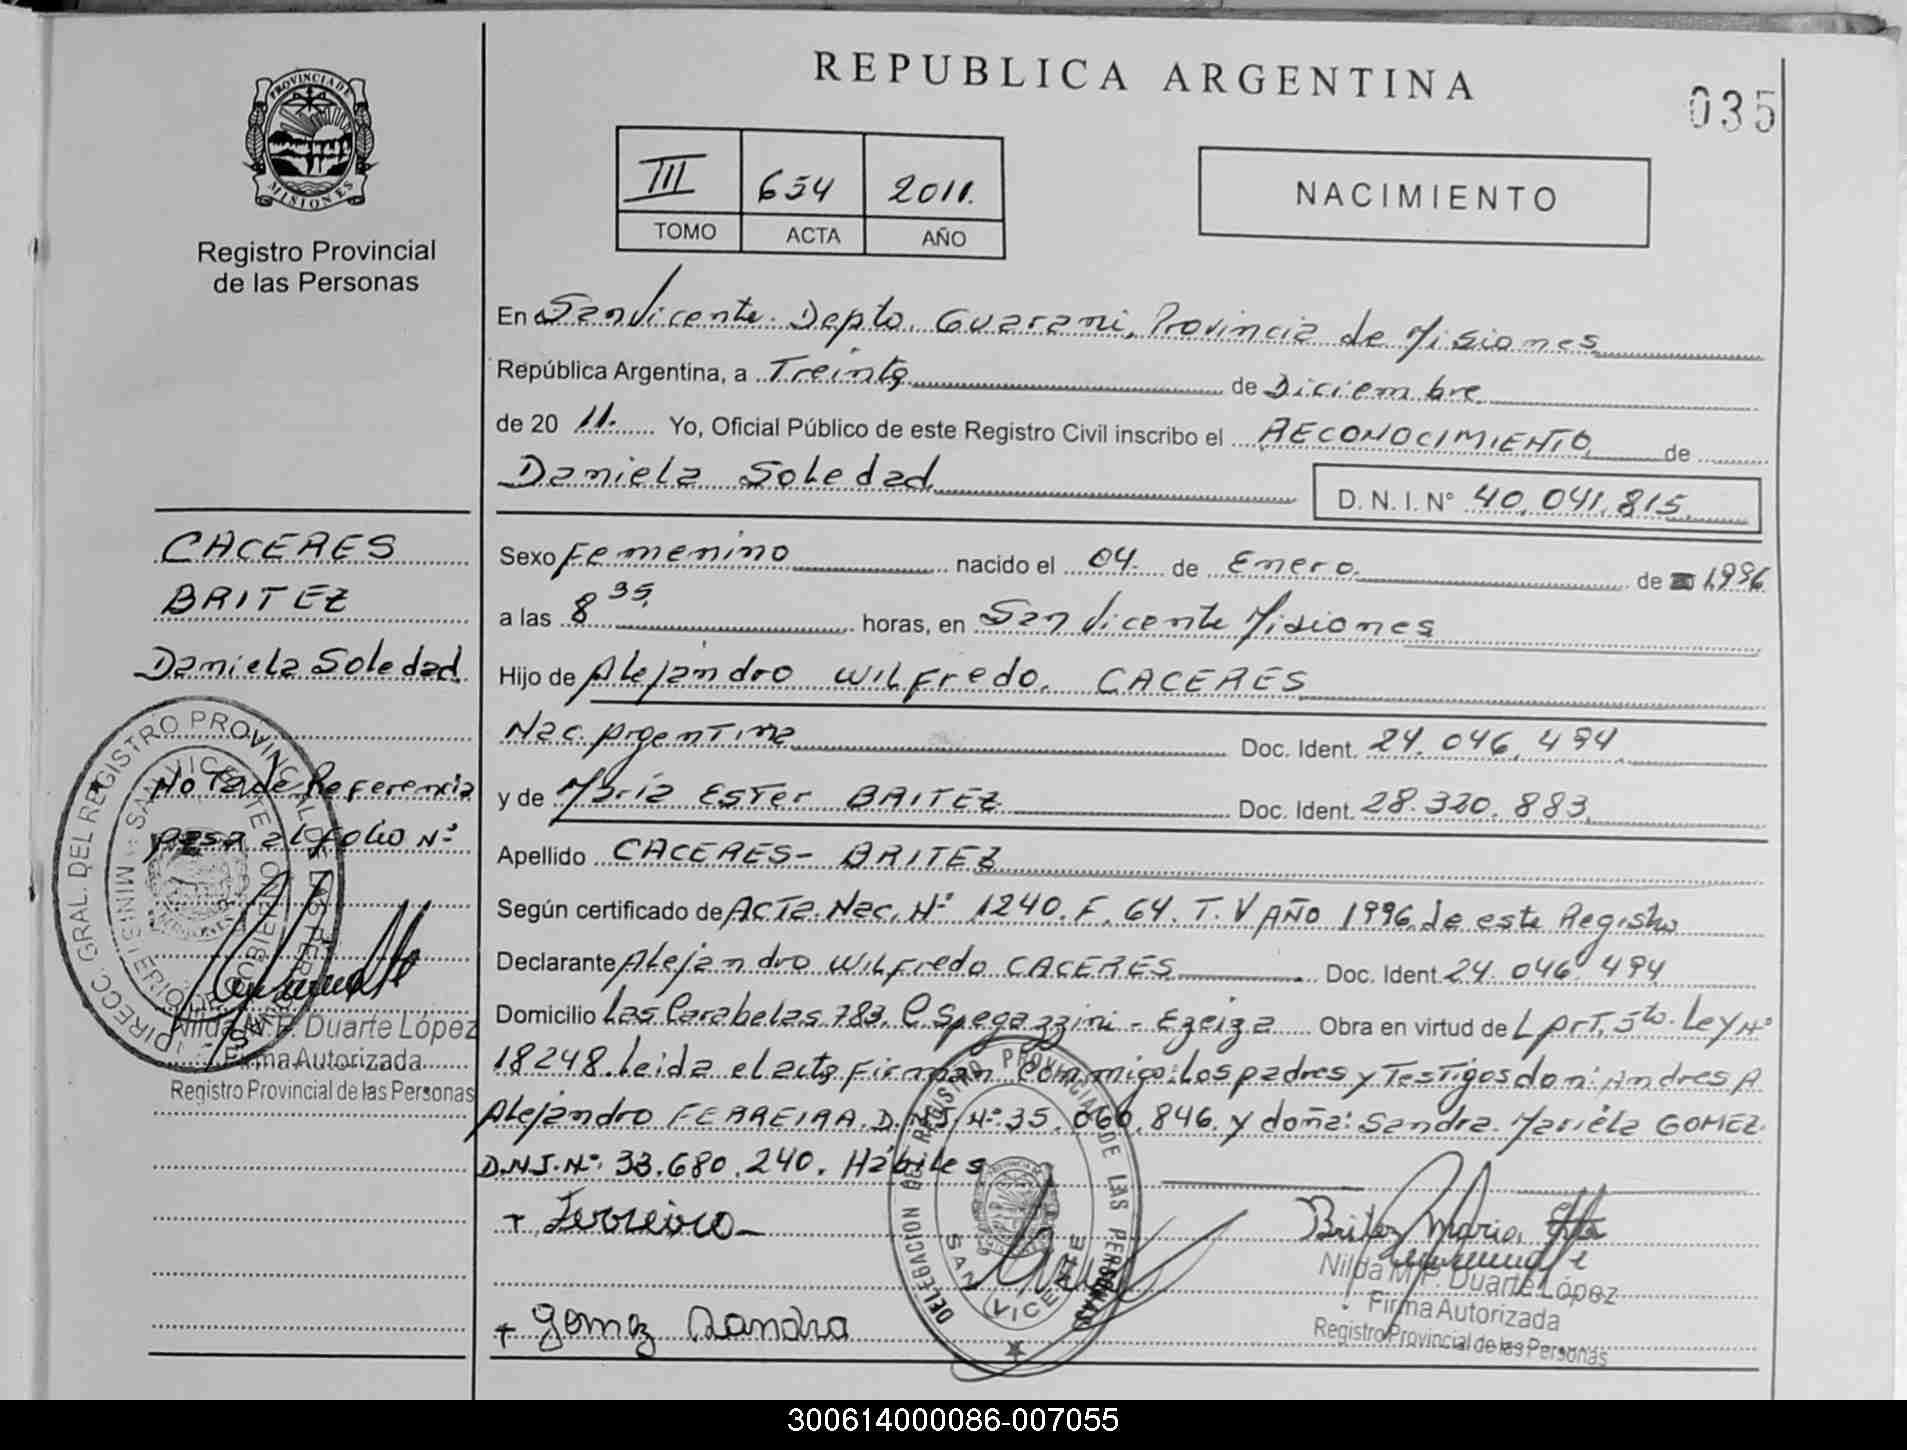 REPUBLICA ARGENTINA
035
PROVINCIA DE
MISIONES
Registro Provincial
de las Personas
III 654 2011.
TOMO ACTA AÑO
NACIMIENTO
En San Vicente. Depto. Guarani, Provincia de Misiones
República Argentina, a Treinta de Diciembre
de 20 11. Yo, Oficial Público de este Registro Civil inscribo el RECONOCIMIENTO de
Daniela Soledad D. N. I. N° 40.041.815
CACERES
BRITEZ
Daniela Soledad
Nota de Referencia
pasa al folio N°
DIRECC. GRAL. DEL REGISTRO PROVINCIAL DE LAS PERSONAS
SAN VICENTE
Nilda M. P. Duarte López
Firma Autorizada
Registro Provincial de las Personas
Sexo Femenino nacido el 04. de Enero. de 1996
a las 8 35. horas, en San Vicente Misiones
Hijo de Alejandro Wilfredo. CACERES
Nac. Argentina Doc. Ident. 24.046.494
y de María Ester BRITEZ Doc. Ident. 28.320.883
Apellido CACERES - BRITEZ
Según certificado de Acta. Nac. N° 1240. F. 64. T. V AÑO 1996. de este Registro
Declarante Alejandro Wilfredo CACERES Doc. Ident. 24.046.494
Domicilio Las Carabelas 783. C. Spegazzini - Ezeiza Obra en virtud de L Art. 5to. Ley N°
18248. Leida el acta firman conmigo: Los padres y Testigos don: Andres A
Alejandro FERREIRA. D.N.I. N°: 35.060.846. y doña: Sandra. Mariela GOMEZ
D.N.I. N°: 33.680.240. Hábiles
+ Ferreira
+ Gomez Sandra
DELEGACION DEL REGISTRO PROVINCIAL DE LAS PERSONAS
SAN VICENTE
Britez Maria Ester
Nilda M. P. Duarte López
Firma Autorizada
Registro Provincial de las Personas
300614000086-007055